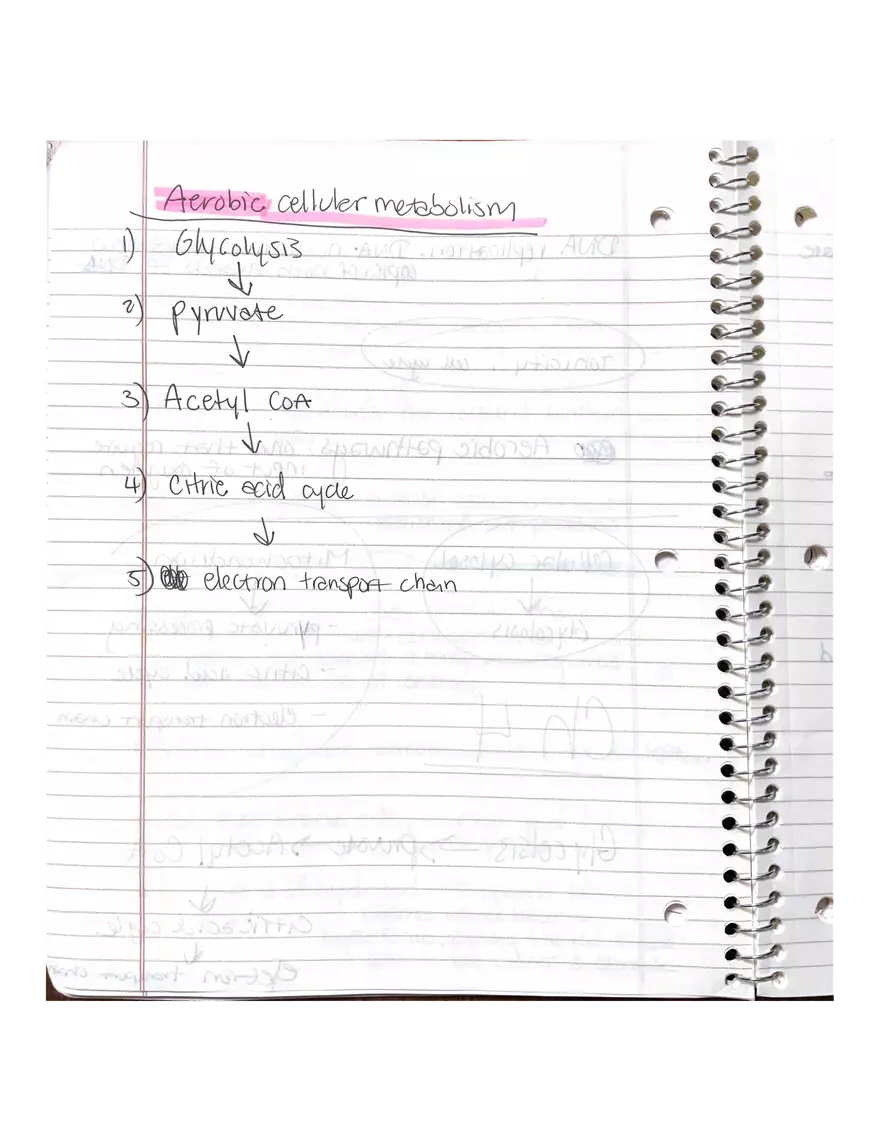 Aerobic cellular metabolism
1) Glycolysis
↓
2) pyruvate
↓
3) Acetyl CoA
↓
4) Citric acid cycle
↓
5) electron transport chain